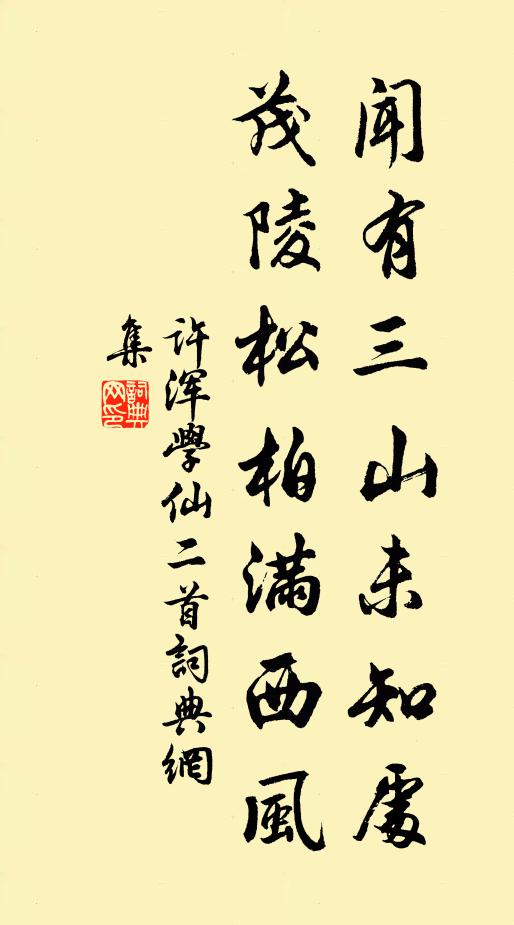 闻有三山未知處
茂陵松柏满西風
许浑學仙二首詞典網
集
詞典網印